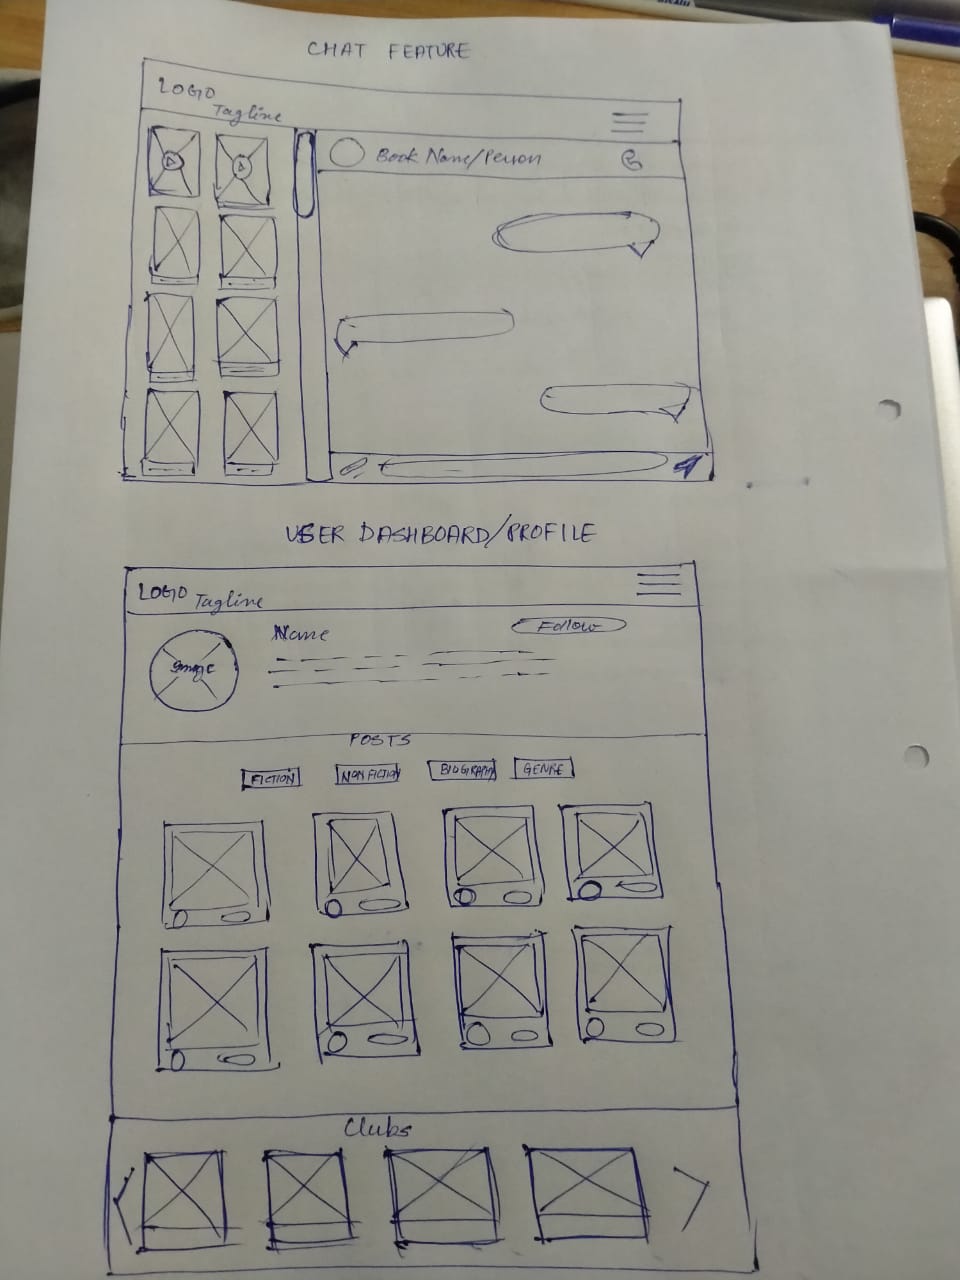 CHAT FEATURE
LOGO
Tagline
Book Name/Person
USER DASHBOARD/PROFILE
LOGO Tagline
Name
Follow
Image
POSTS
FICTION NON FICTION BIOGRAPHY GENRE
Clubs